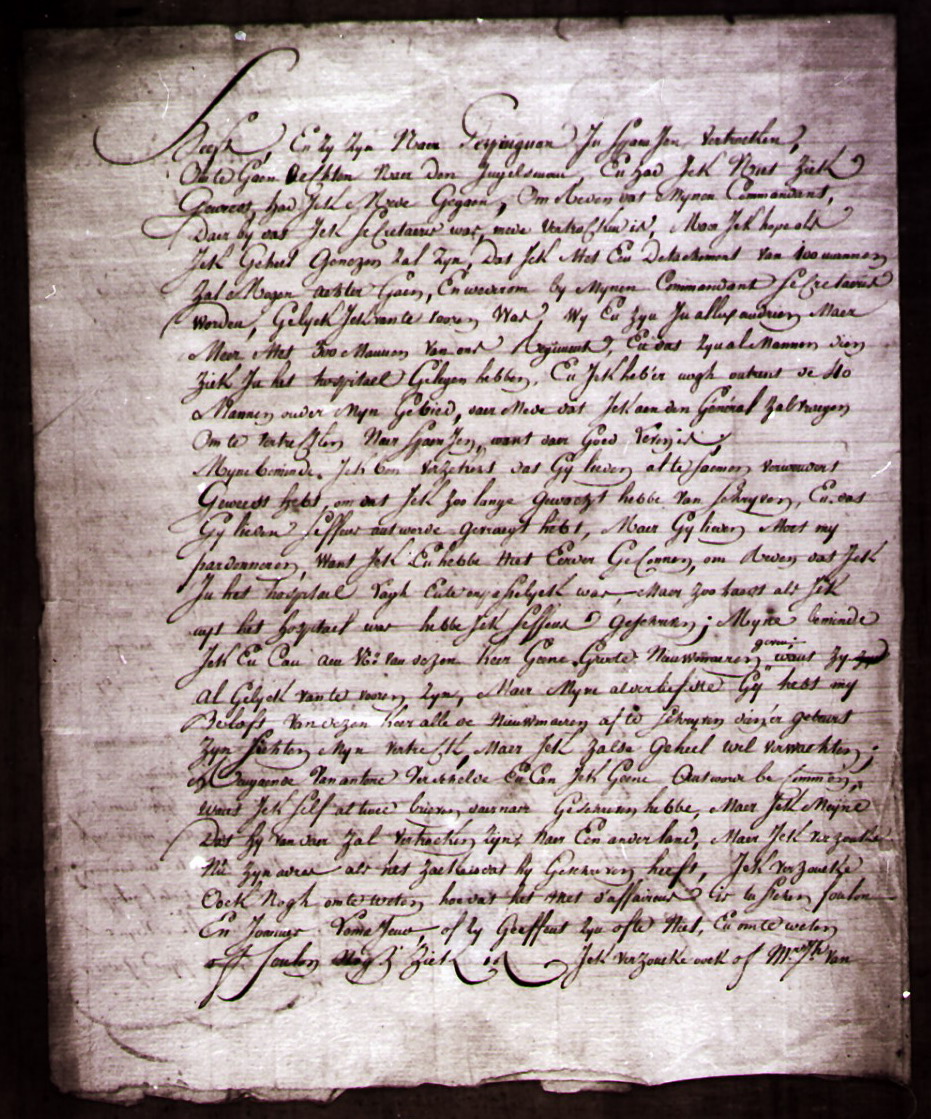 heeft, En zy zyn Naer Perpinguan In Spanjen vertrocken,
Om te Gaen vechten Naer den Ingelsman, En had Ick Niet Ziek
Geweest, had Ick Mede Gegaen, Om Reden dat Mynen Commandant,
Daer by dat Ick secretaris was, mede vertrocken is, Maer Ick hope als
Ick Geheel Genezen Zal Zyn, Dat Ick Met Een Detachement van 400 mannen
Zal Mogen achter Gaen, En wederom by Mynen Commandant Secretaris
worden, Gelyck Ick van te vooren Was, Wy En Zyn In allexandrien Maer
Meer Met 300 Mannen van ons Regiment, En das Zyn al Mannen dien
Ziek In het hospitael Gelegen hebben, En Ick heb'er nogh ontrent de 40
Mannen onder Myn Gebied, daer Mede dat Ick aen den General Zal vragen
Om te vertrecken Naer Spanjen, want daer Goed leven is,
Myne beminde. Ick ben verzekert das Gylieden al te saemen verwondert
Geweest hebt, om dat Ick Zoo lange gewacht hebbe van schryven, En dat
Gylieden seffens antworde gevraegt hebt, Maer Gylieden Moet my
pardonneren, Want Ick En hebbe Niet Eerder Geconnen, om Reden dat Ick
In het hospitael was, Maer Zoo haest als Ick
uyt het hospitael was hebbe Ick seffens geschreven; Myne beminde
Ick En Can aen U: van dezen keer Geene Groote Nieuwmaeren geven, want Zy
al Gelyck van te vooren Zyn, Maer Myne alderliefste Gy hebt my
Belooft van dezen keer alle de Nieuwmaeren af te schryven dien'er gebeurt
Zyn Sichten Myn vertreck, Maer Ick Zal de Geheel wel verwachten;
Aengaende Van antone Verschelde En Can Ick Geene Antworde becommen,
want Ick self al twee brieven daer naer Geschreven hebbe, Maer Ick Meyne
Dat hy van daer Zal vertrocken Zyn Naer Een ander land, Maer Ick verzoecke
Nu Zyn adres als het Zaeke is dat hy Geschreven heeft, Ick verzoecke
Oock Nogh om te weten hoe dat het Met d'affairens is tusschen soulon
En Joannes, of Zy Geeffent Zyn ofte Niet, En om te weten
of soulon Nogh Ziek is, Ick verzoecke oock of van